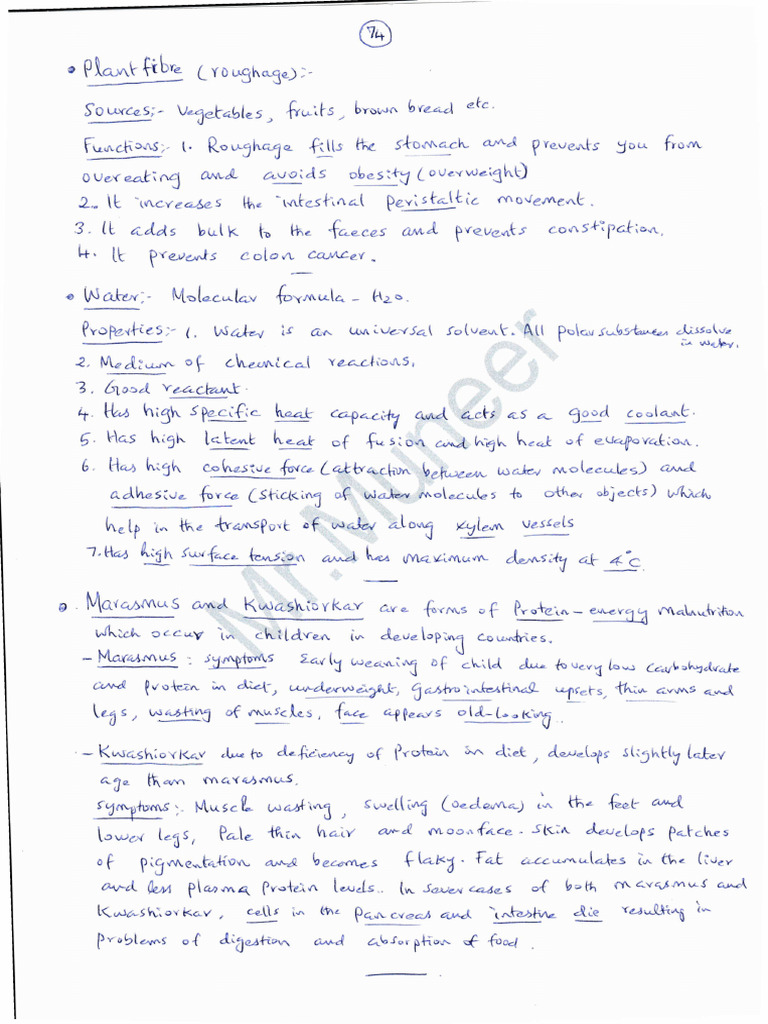 74
• Plant fibre (roughage):-
Sources:- Vegetables, fruits, brown bread etc.
Functions:- 1. Roughage fills the stomach and prevents you from
overeating and avoids obesity (overweight)
2. It increases the intestinal peristaltic movement.
3. It adds bulk to the faeces and prevents constipation.
4. It prevents colon cancer.
• Water:- Molecular formula - H2O.
Properties:- 1. Water is an universal solvent. All polar substances dissolve
in water.
2. Medium of chemical reactions.
3. Good reactant.
4. Has high specific heat capacity and acts as a good coolant.
5. Has high latent heat of fusion and high heat of evaporation.
6. Has high cohesive force (attraction between water molecules) and
adhesive force (sticking of water molecules to other objects) which
help in the transport of water along xylem vessels
7. Has high surface tension and has maximum density at 4°C.
• Marasmus and Kwashiorkar are forms of Protein-energy malnutrition
which occur in children in developing countries.
- Marasmus: symptoms Early weaning of child due to very low carbohydrate
and protein in diet, underweight, Gastrointestinal upsets, thin arms and
legs, wasting of muscles, face appears old-looking.
- Kwashiorkar due to deficiency of Protein in diet, develops slightly later
age than marasmus.
symptoms:- Muscle wasting, swelling (oedema) in the feet and
lower legs, Pale thin hair and moonface. Skin develops patches
of pigmentation and becomes flaky. Fat accumulates in the liver
and less plasma protein levels.. In sever cases of both marasmus and
Kwashiorkar, cells in the pancreas and intestine die resulting in
problems of digestion and absorption of food.
Mr.Muneer